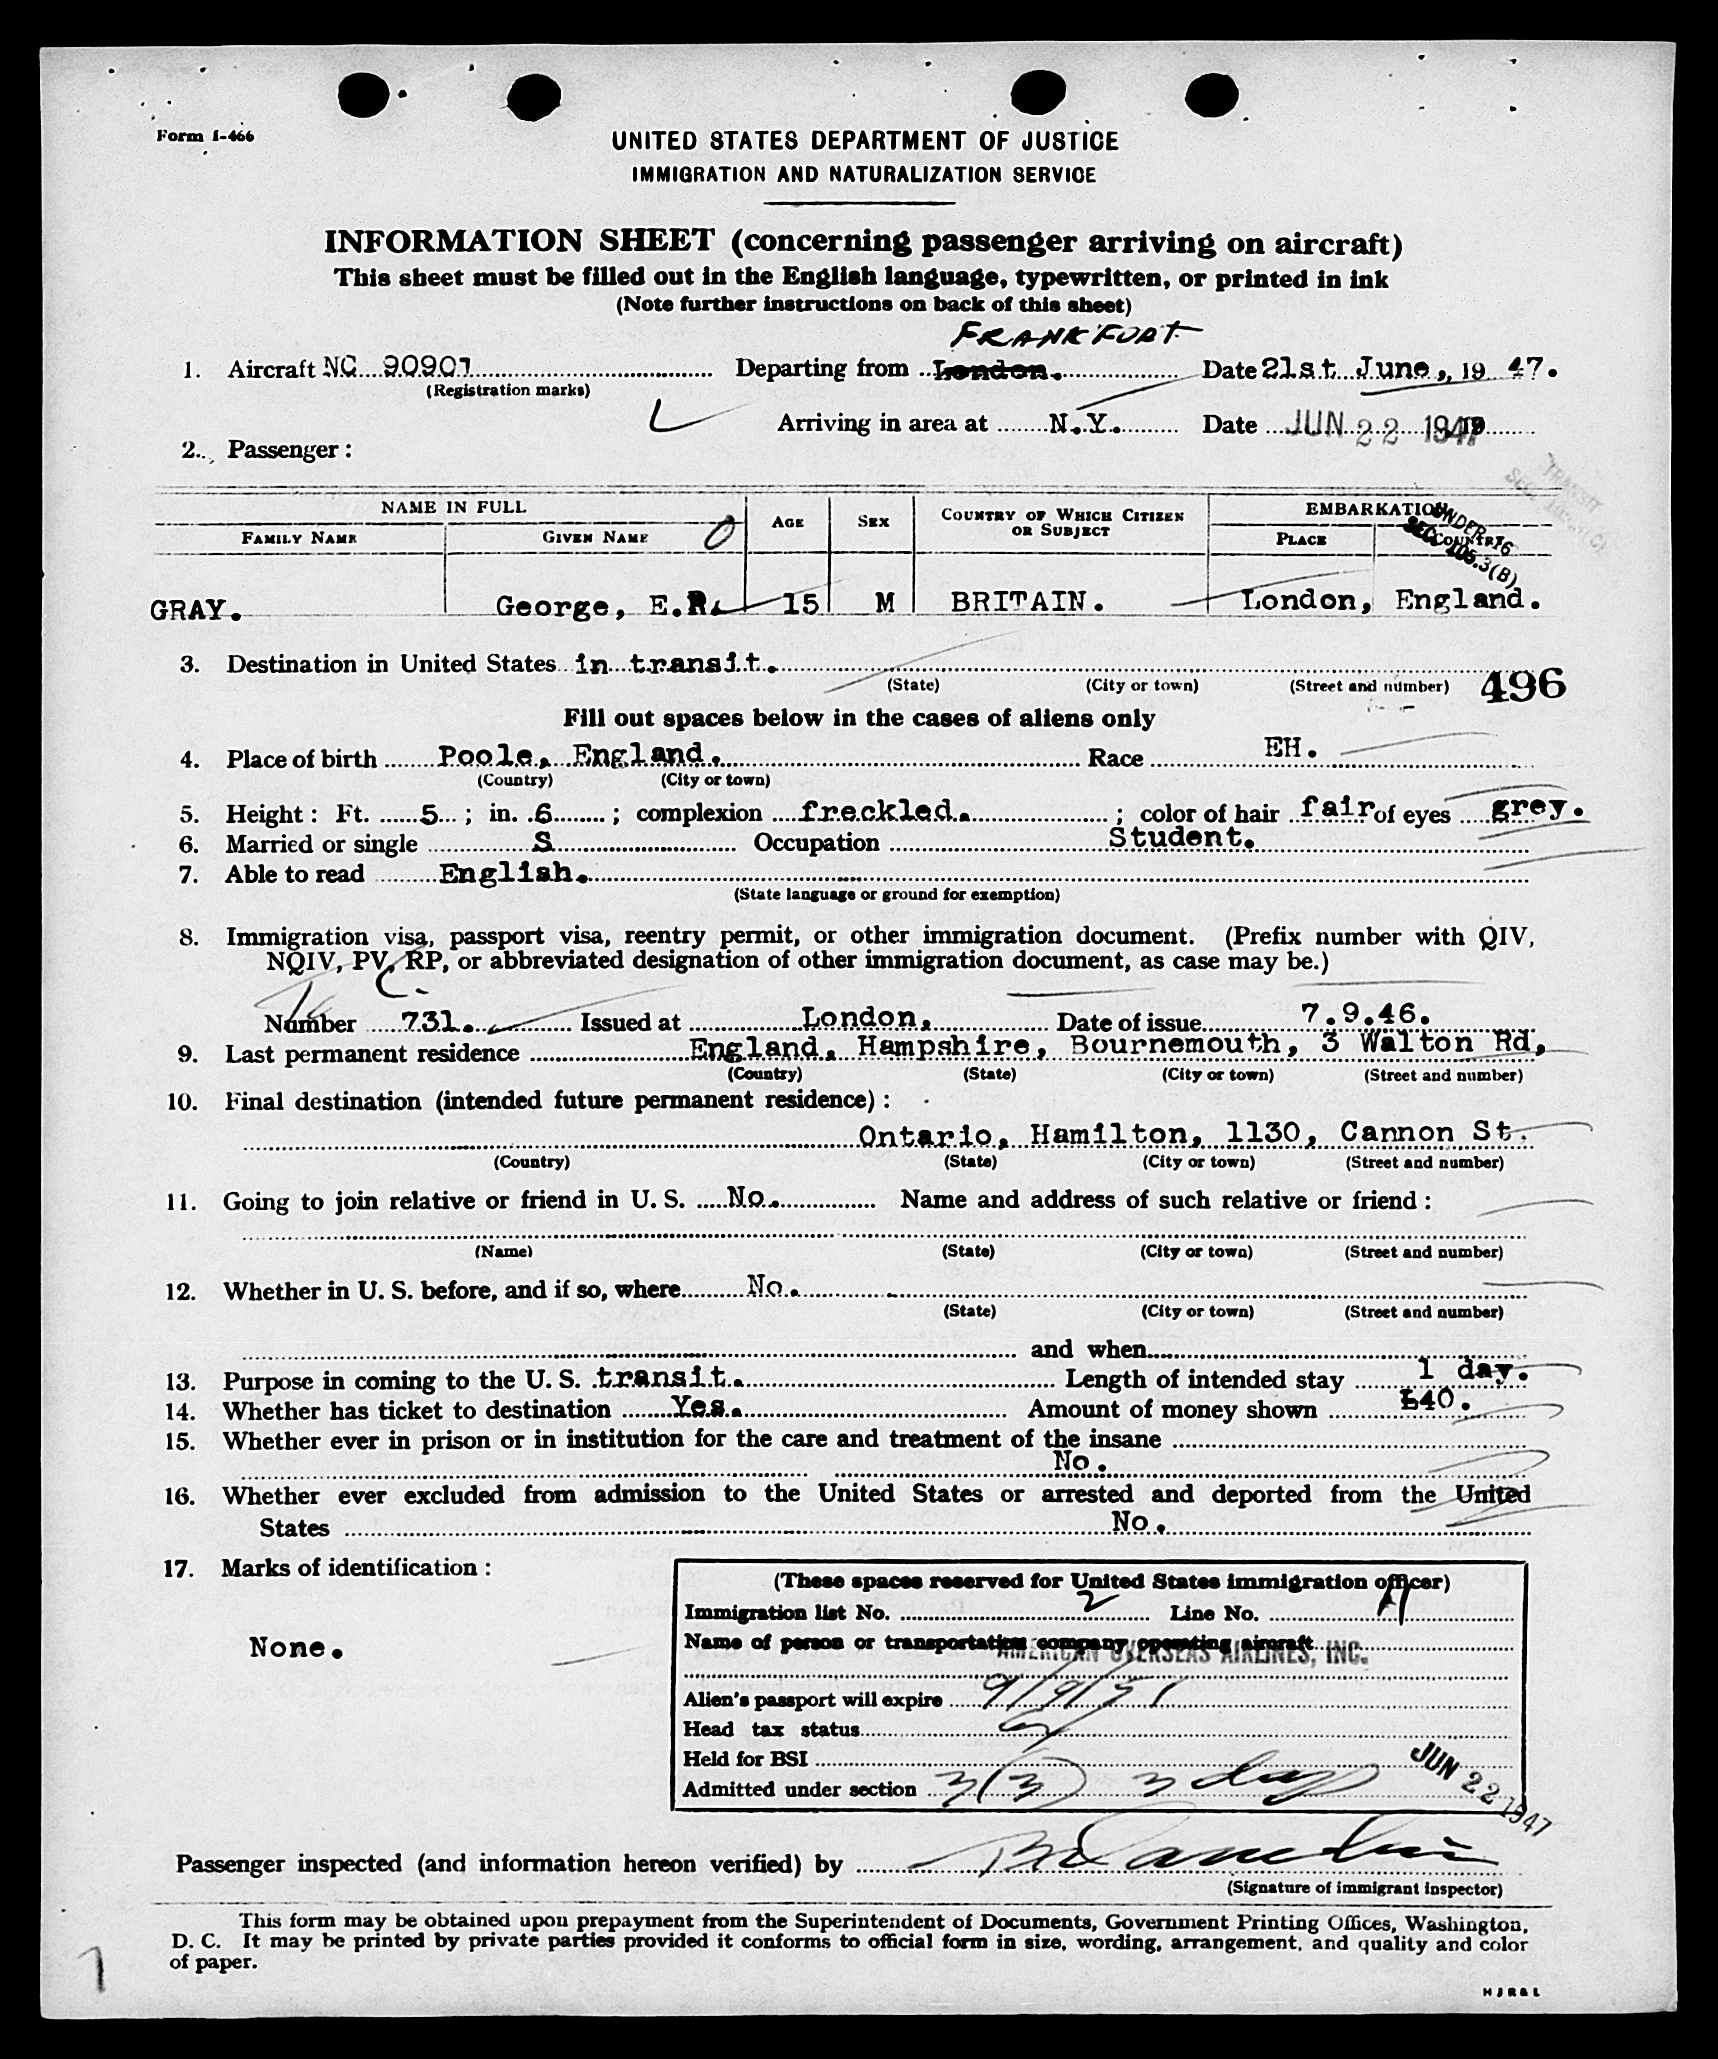 Form I-466
UNITED STATES DEPARTMENT OF JUSTICE
IMMIGRATION AND NATURALIZATION SERVICE
INFORMATION SHEET (concerning passenger arriving on aircraft)
This sheet must be filled out in the English language, typewritten, or printed in ink
(Note further instructions on back of this sheet)
FRANKFURT
1. Aircraft NC 90907 Departing from London. Date 21st June, 19 47.
(Registration marks)
Arriving in area at N.Y. Date JUN 22 1947 19
2. Passenger:
NAME IN FULL AGE SEX COUNTRY OF WHICH CITIZEN OR SUBJECT EMBARKATION
FAMILY NAME GIVEN NAME PLACE COUNTRY
UNDER 16
SEC. 105.3(B)
GRAY. George, E.R. 15 M BRITAIN. London, England.
3. Destination in United States in transit.
(State) (City or town) (Street and number) 496
Fill out spaces below in the cases of aliens only
4. Place of birth Poole, England. Race EH.
(Country) (City or town)
5. Height: Ft. 5 ; in. 6 ; complexion freckled. ; color of hair fair of eyes grey.
6. Married or single S Occupation Student.
7. Able to read English.
(State language or ground for exemption)
8. Immigration visa, passport visa, reentry permit, or other immigration document. (Prefix number with QIV,
NQIV, PV, RP, or abbreviated designation of other immigration document, as case may be.)
Number 731. Issued at London, Date of issue 7.9.46.
9. Last permanent residence England, Hampshire, Bournemouth, 3 Walton Rd,
(Country) (State) (City or town) (Street and number)
10. Final destination (intended future permanent residence):
Ontario, Hamilton, 1130, Cannon St.
(Country) (State) (City or town) (Street and number)
11. Going to join relative or friend in U. S. No. Name and address of such relative or friend:
(Name) (State) (City or town) (Street and number)
12. Whether in U. S. before, and if so, where No.
(State) (City or town) (Street and number)
and when
13. Purpose in coming to the U. S. transit. Length of intended stay 1 day.
14. Whether has ticket to destination Yes. Amount of money shown £40.
15. Whether ever in prison or in institution for the care and treatment of the insane
No.
16. Whether ever excluded from admission to the United States or arrested and deported from the United
States No.
17. Marks of identification:
None.
(These spaces reserved for United States immigration officer)
Immigration list No. 2 Line No. 11
Name of person or transportation company operating aircraft
AMERICAN OVERSEAS AIRLINES, INC.
Alien's passport will expire 9/9/51
Head tax status
Held for BSI
Admitted under section 3(3) 3 days
JUN 22 1947
Passenger inspected (and information hereon verified) by
(Signature of immigrant inspector)
This form may be obtained upon prepayment from the Superintendent of Documents, Government Printing Offices, Washington,
D. C. It may be printed by private parties provided it conforms to official form in size, wording, arrangement, and quality and color
of paper.